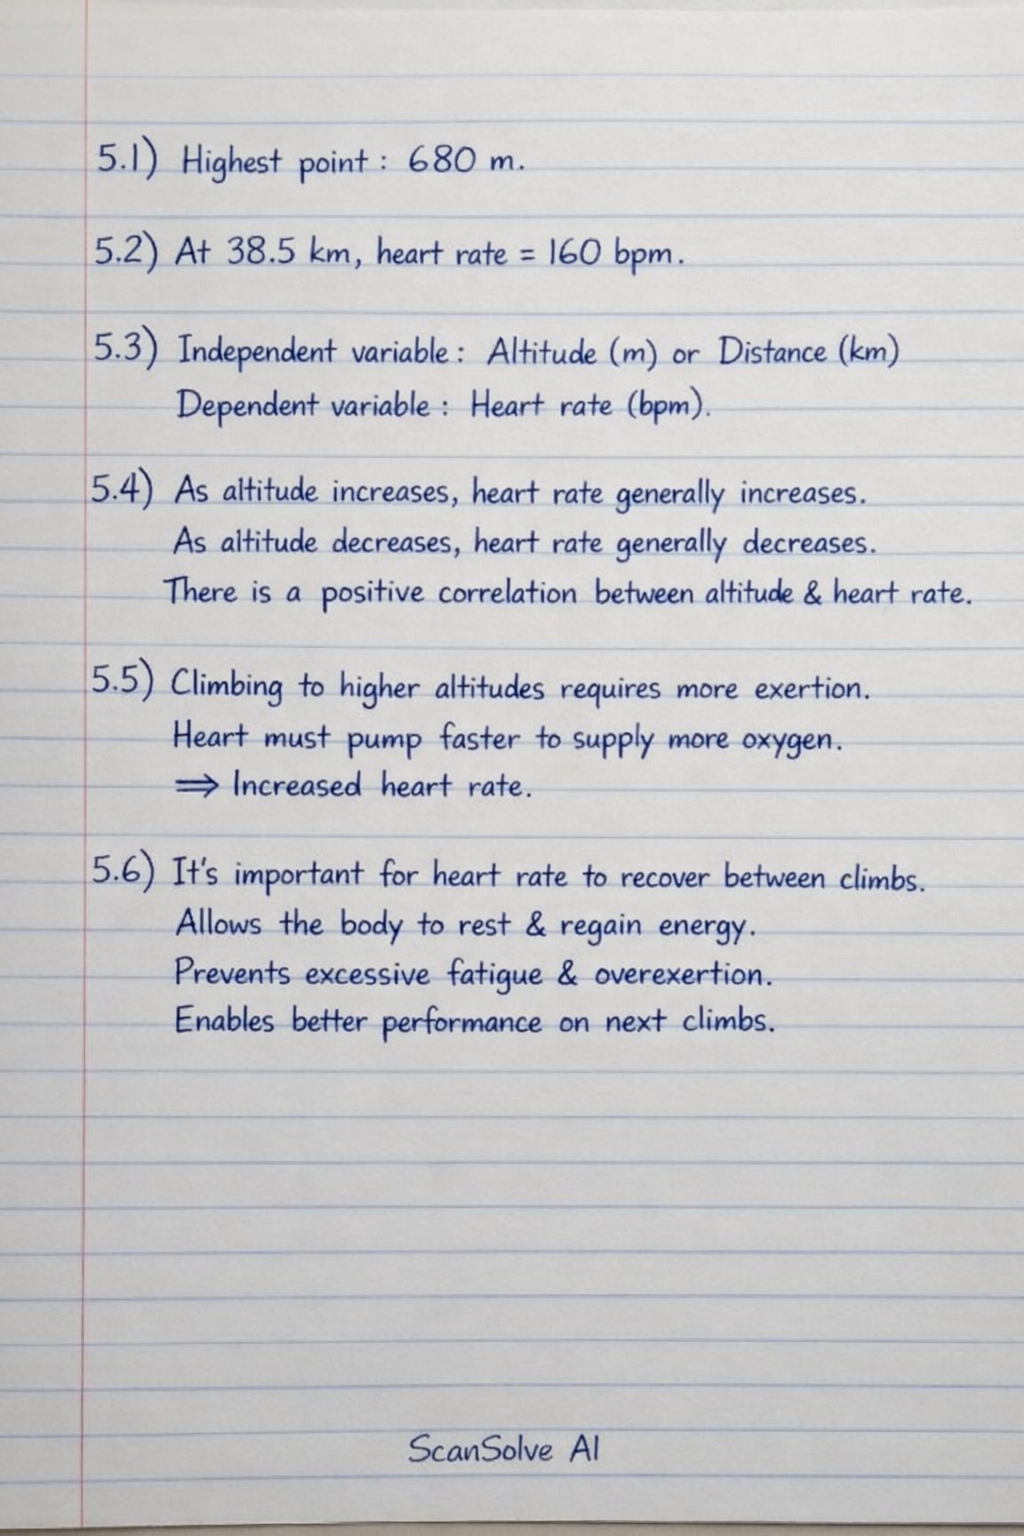 5.1) Highest point : 680 m.
5.2) At 38.5 km, heart rate = 160 bpm.
5.3) Independent variable : Altitude (m) or Distance (km)
Dependent variable : Heart rate (bpm).
5.4) As altitude increases, heart rate generally increases.
As altitude decreases, heart rate generally decreases.
There is a positive correlation between altitude & heart rate.
5.5) Climbing to higher altitudes requires more exertion.
Heart must pump faster to supply more oxygen.
⟹ Increased heart rate.
5.6) It's important for heart rate to recover between climbs.
Allows the body to rest & regain energy.
Prevents excessive fatigue & overexertion.
Enables better performance on next climbs.
ScanSolve AI